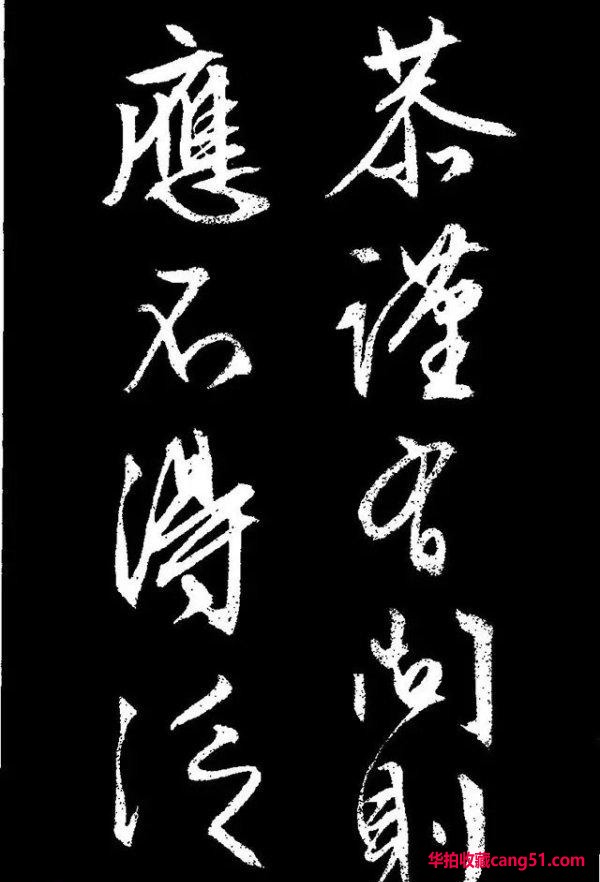 恭謹有問則
應不得泛
华拍收藏cang51.com